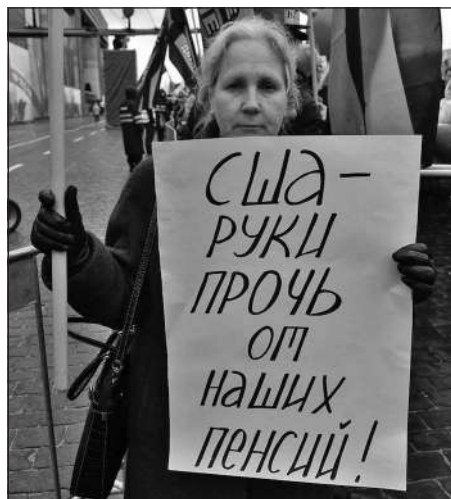 США –
РУКИ
ПРОЧЬ
от
наших
пенсий!